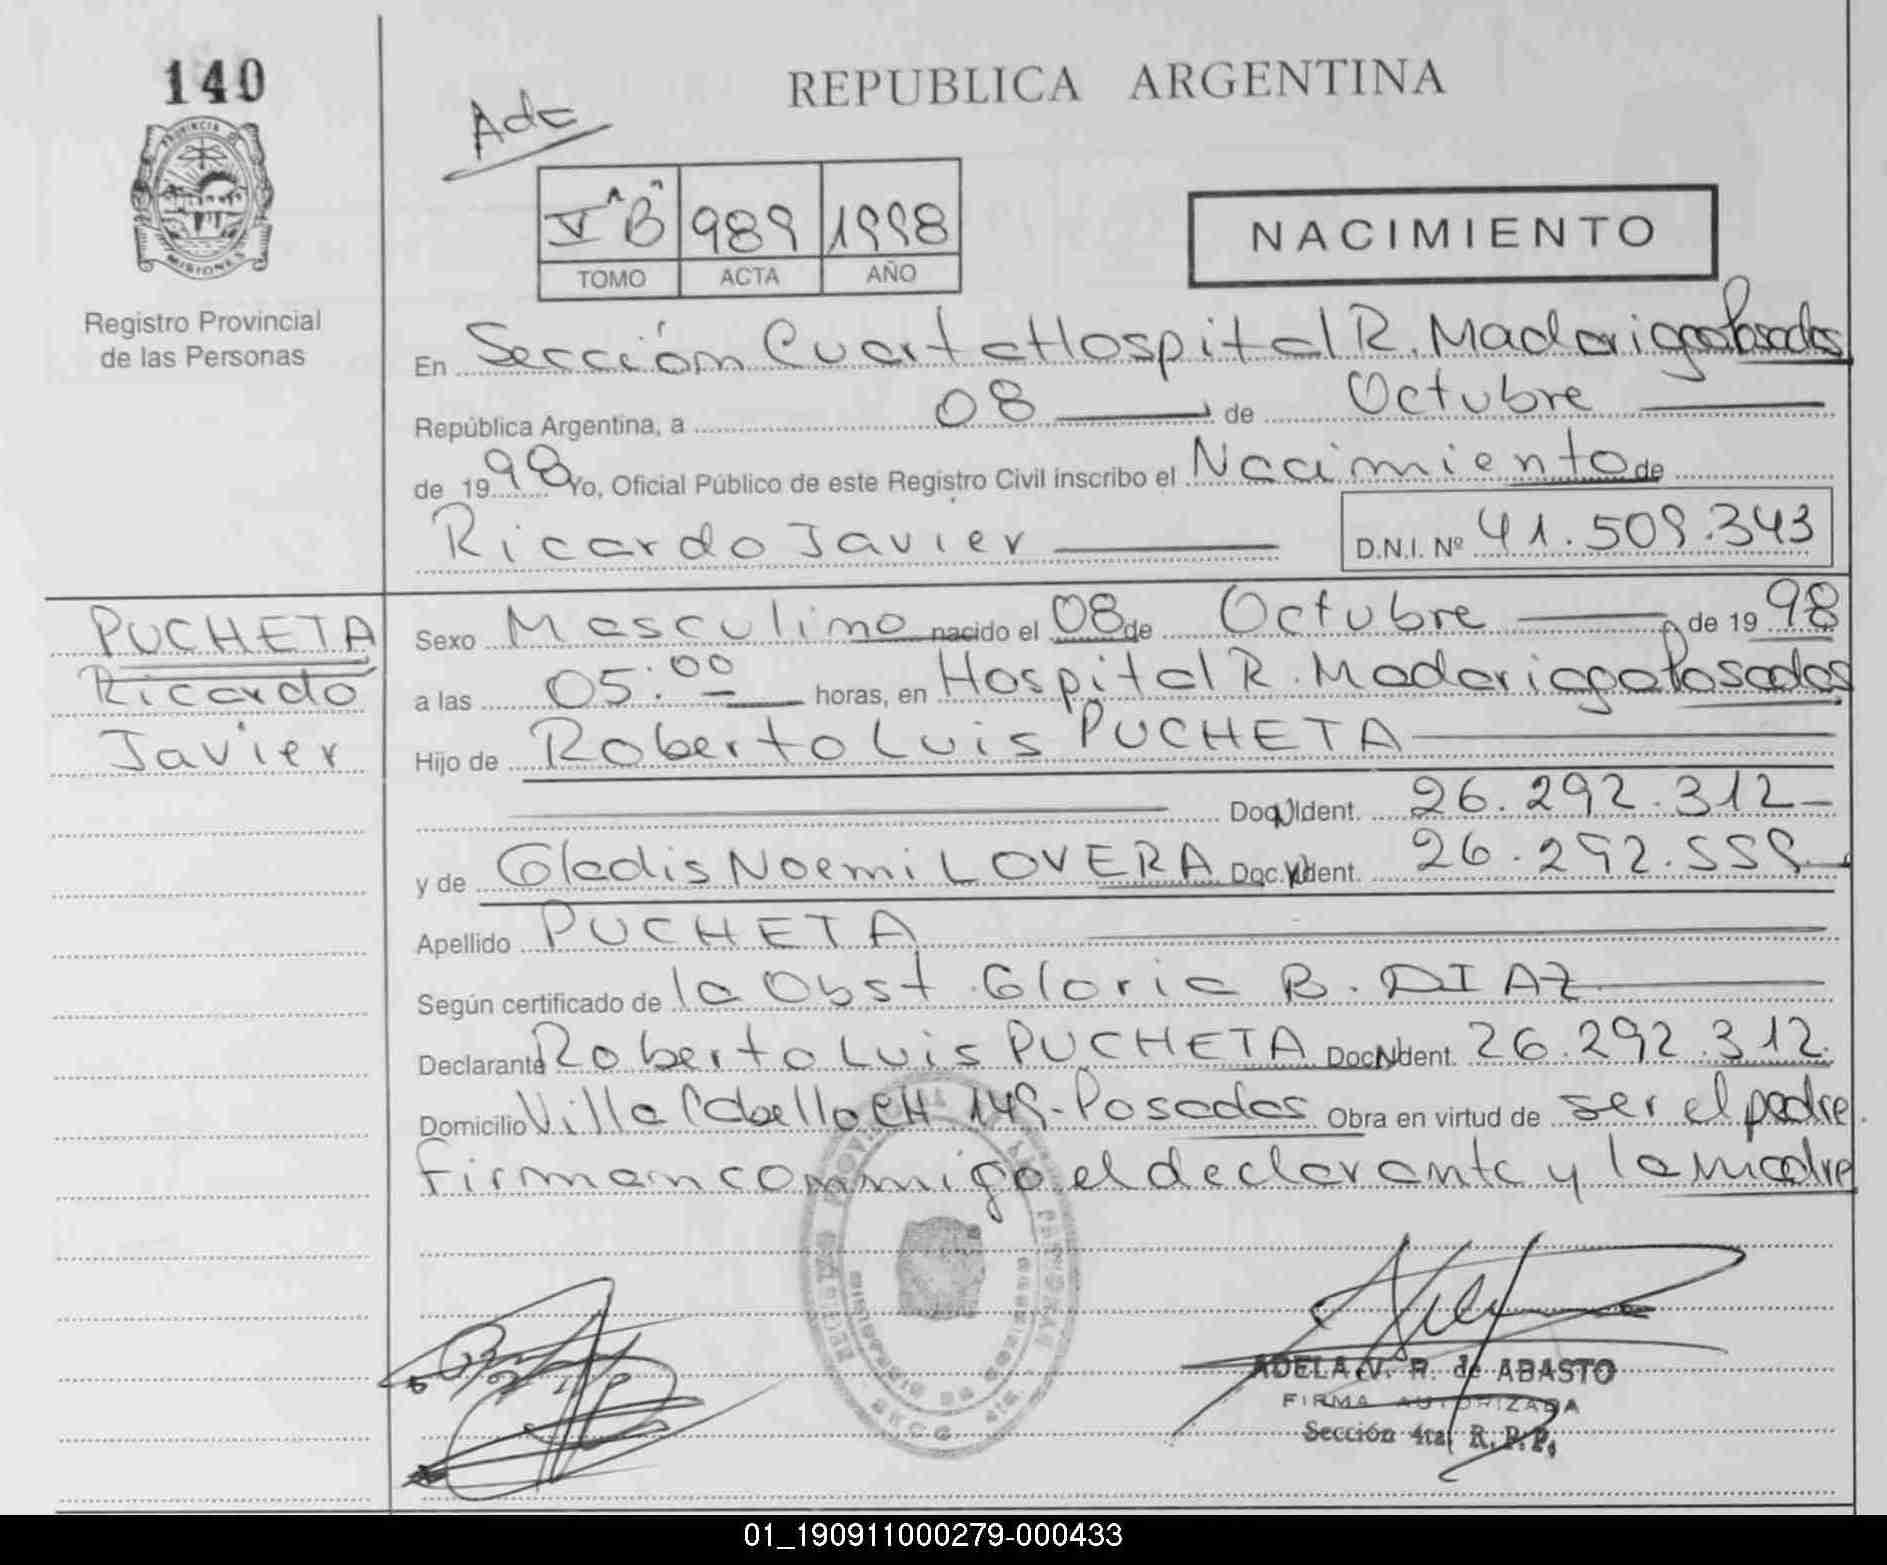 140
REPUBLICA ARGENTINA
Ade
V "B" 989 1998
TOMO ACTA AÑO
NACIMIENTO
PROVINCIA
MISIONES
Registro Provincial
de las Personas
En Sección Cuarta Hospital R. Madariaga Posadas
República Argentina, a 08 de Octubre
de 1998 Yo, Oficial Público de este Registro Civil inscribo el Nacimiento de
Ricardo Javier D.N.I. Nº 41.509.343
PUCHETA
Ricardo
Javier
Sexo Masculino nacido el 08 de Octubre de 1998
a las 05:00 horas, en Hospital R. Madariaga Posadas
Hijo de Roberto Luis PUCHETA
Doc. Ident. 26.292.312
y de Gladis Noemi LOVERA Doc. Ident. 26.292.559
Apellido PUCHETA
Según certificado de la Obst. Gloria B. DIAZ
Declarante Roberto Luis PUCHETA Doc. Ident. 26.292.312
Domicilio Villa Cabello CH 149 - Posadas Obra en virtud de ser el padre.
Firman conmigo el declarante y la madre
ADELA V. R. de ABASTO
FIRMA AUTORIZADA
Sección 4ta. R. P. P.
01_190911000279-000433